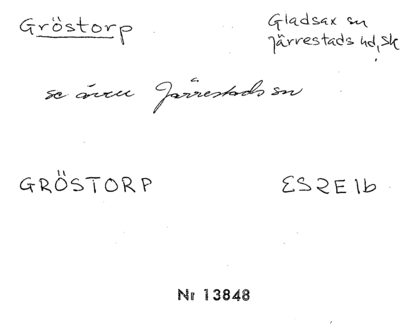 Gröstorp
Gladsax sn
Järrestads hd, Sk
se även Järrestads sn
GRÖSTORP
ES2E1b
Nr 13848